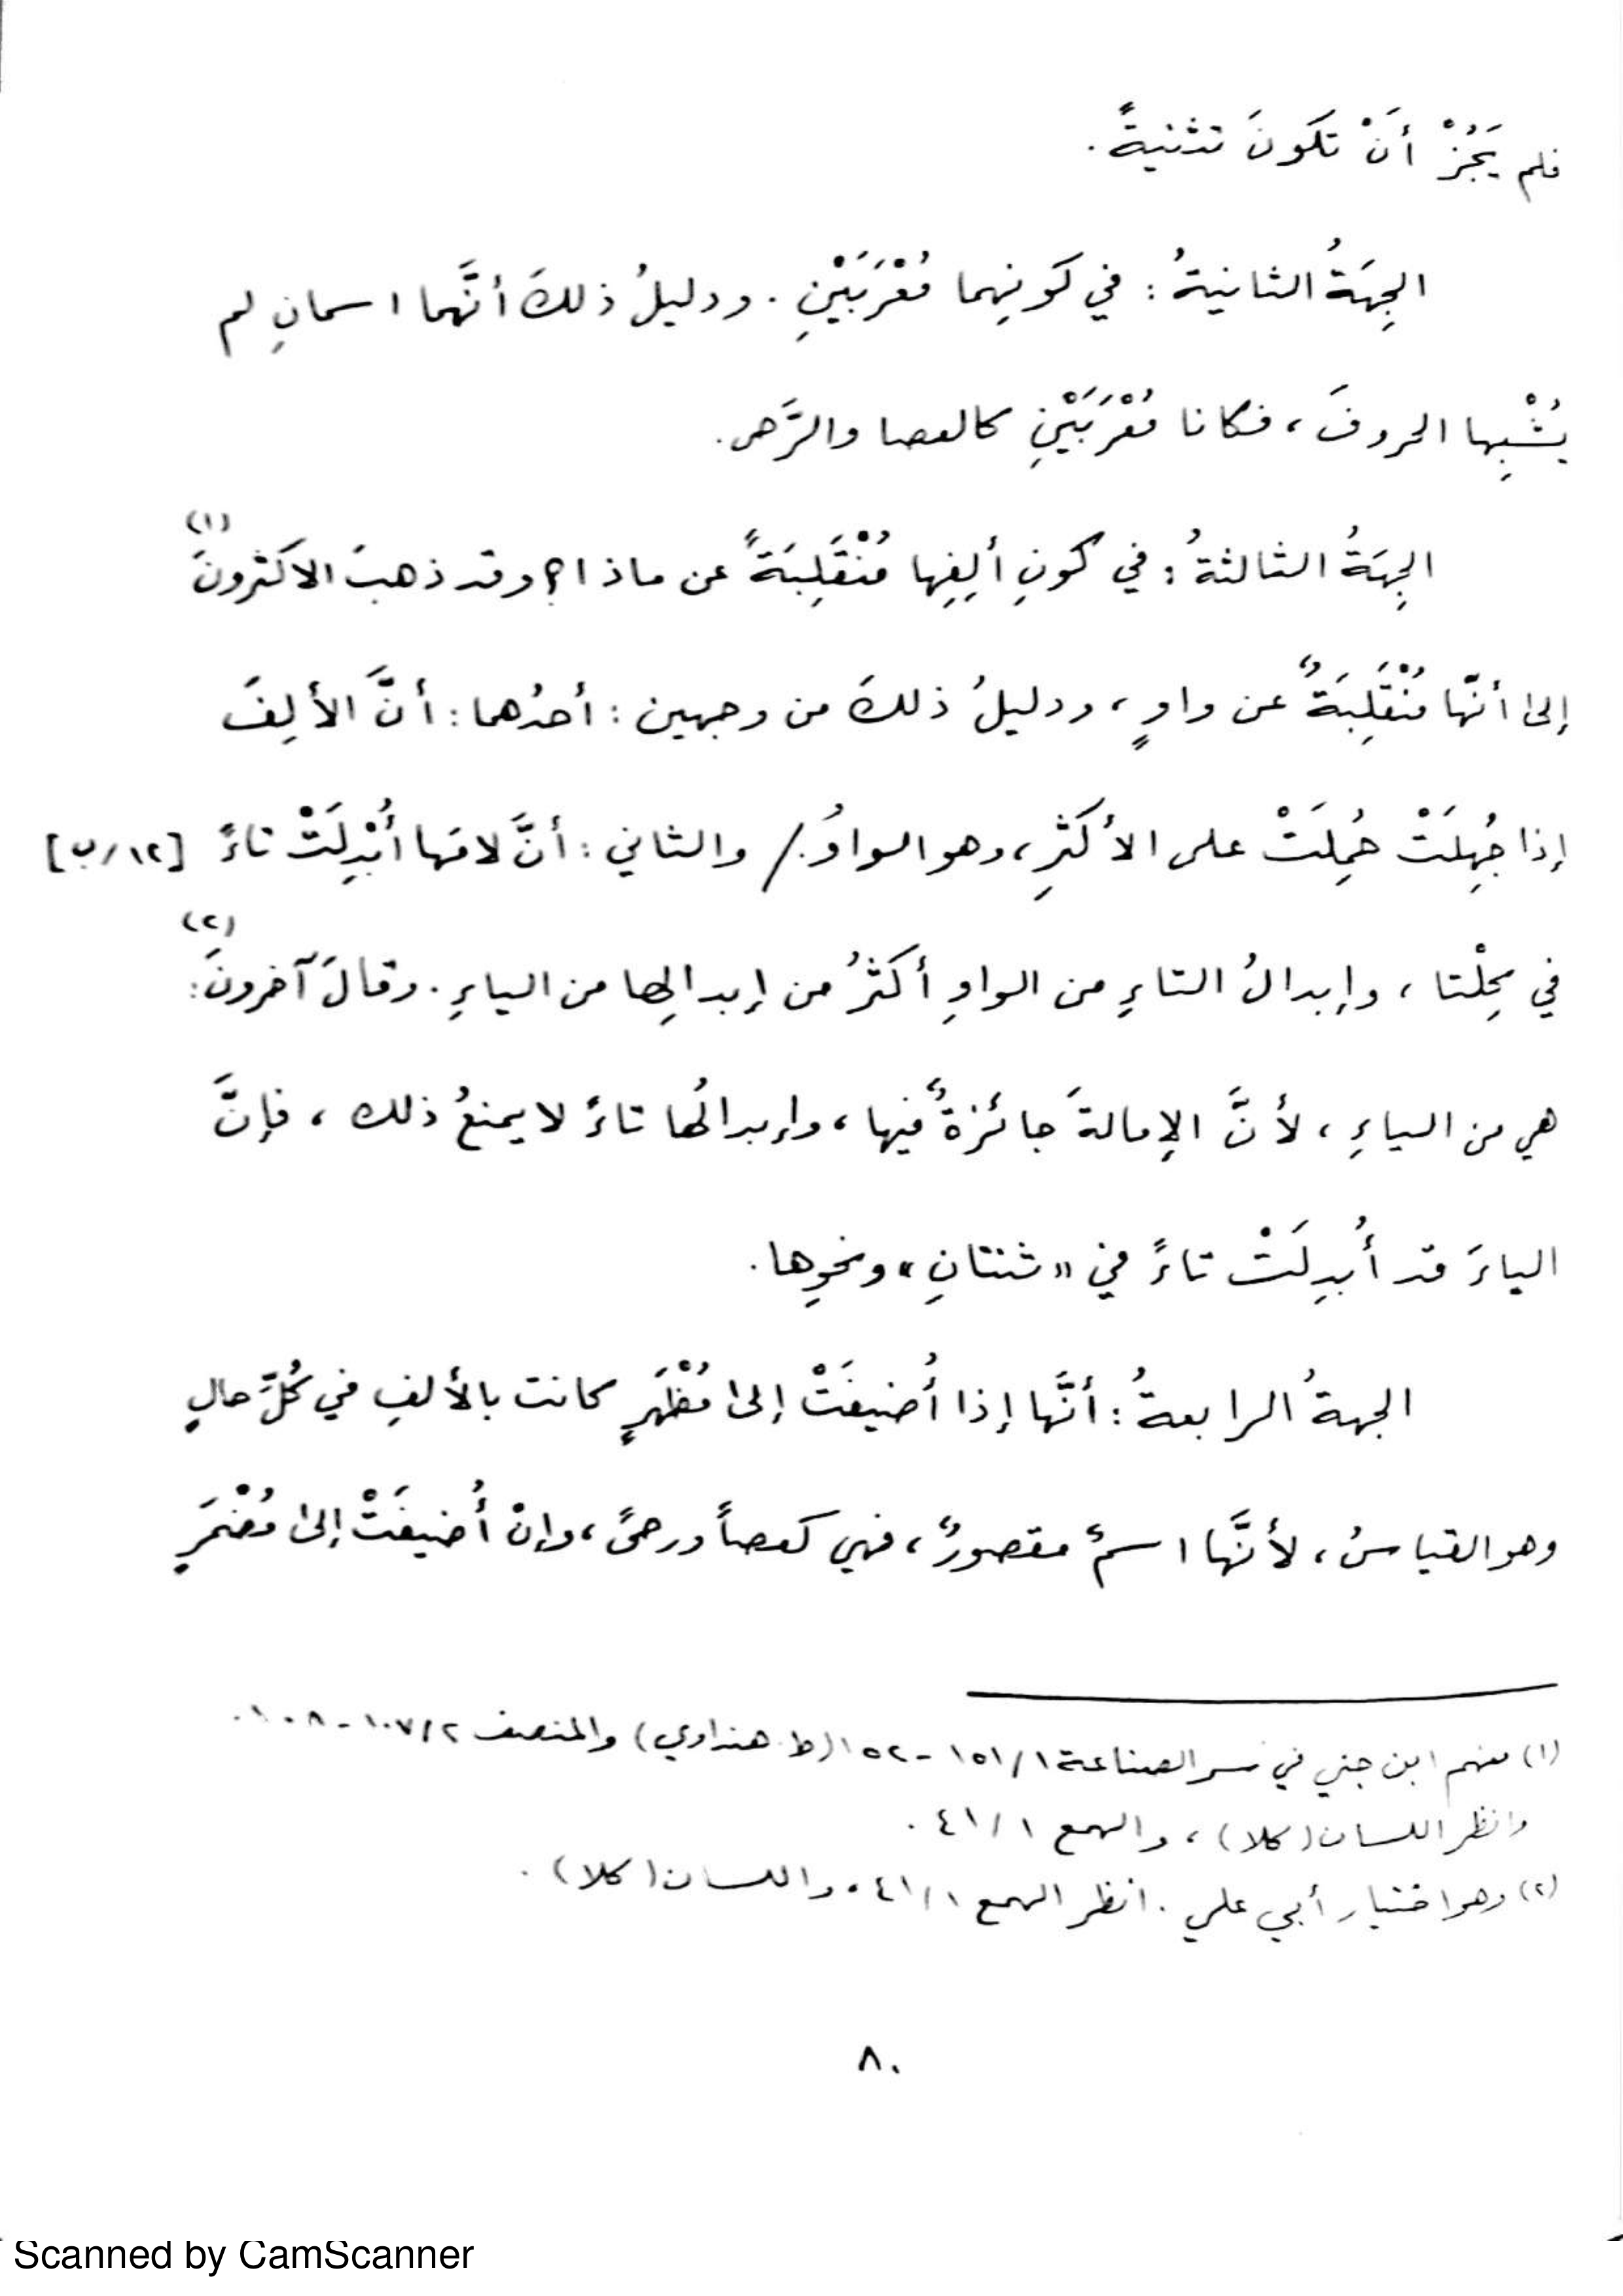 فلم يَجُزْ أَنْ تكونَ تثنيةً .
الجِهَةُ الثانيةُ : في كونِهما مُعْرَبَيْنِ . ودليلُ ذلكَ أنَّهما اسمانِ لم
يُشْبِها الحروفَ ، فكانا مُعْرَبَيْنِ كالعصا والرَّحى .
الجِهَةُ الثالثةُ : في كونِ ألِفِها مُنْقَلِبَةً عن ماذا ؟ وقد ذهبَ الاكثرونَ (١)
إلى أنّها مُنْقَلِبَةٌ عن واوٍ ، ودليلُ ذلكَ من وجهين : أحدُهما : أنَّ الألِفَ
إذا جُهِلَتْ حُمِلَتْ على الأكثرِ ، وهو الواوُ . / والثاني : أنَّ لامَها أُبْدِلَتْ تاءً [١٢/ب]
في كِلْتا ، وإبدالُ التاءِ من الواوِ أكثرُ من إبدالِها من الياءِ . وقالَ آخرونَ (٢) :
هي من الياءِ ، لأنَّ الإمالةَ جائزةٌ فيها ، وإبدالُها تاءً لا يمنعُ ذلك ، فإنَّ
الياءَ قد أُبدِلَتْ تاءً في « ثنتانِ » ونحوِها .
الجهةُ الرابعةُ : أنَّها إذا أُضيفَتْ إلى مُظْهَرٍ كانت بالألفِ في كُلِّ حالٍ
وهو القياسُ ، لأنَّها اسمٌ مقصورٌ ، فهي كعصاً ورحىً ، وإنْ أُضيفَتْ إلى مُضْمَرٍ
(١) منهم ابن جني في سر الصناعة ١/١٥١ - ١٥٢ (ط. هنداوي) والمنصف ٢/١٠٧ - ١٠٨ .
وانظر اللسان (كلا) ، والهمع ١/٤١ .
(٢) وهو اختيار أبي علي . انظر الهمع ١/٤١ ، واللسان (كلا) .
٨٠
Scanned by CamScanner